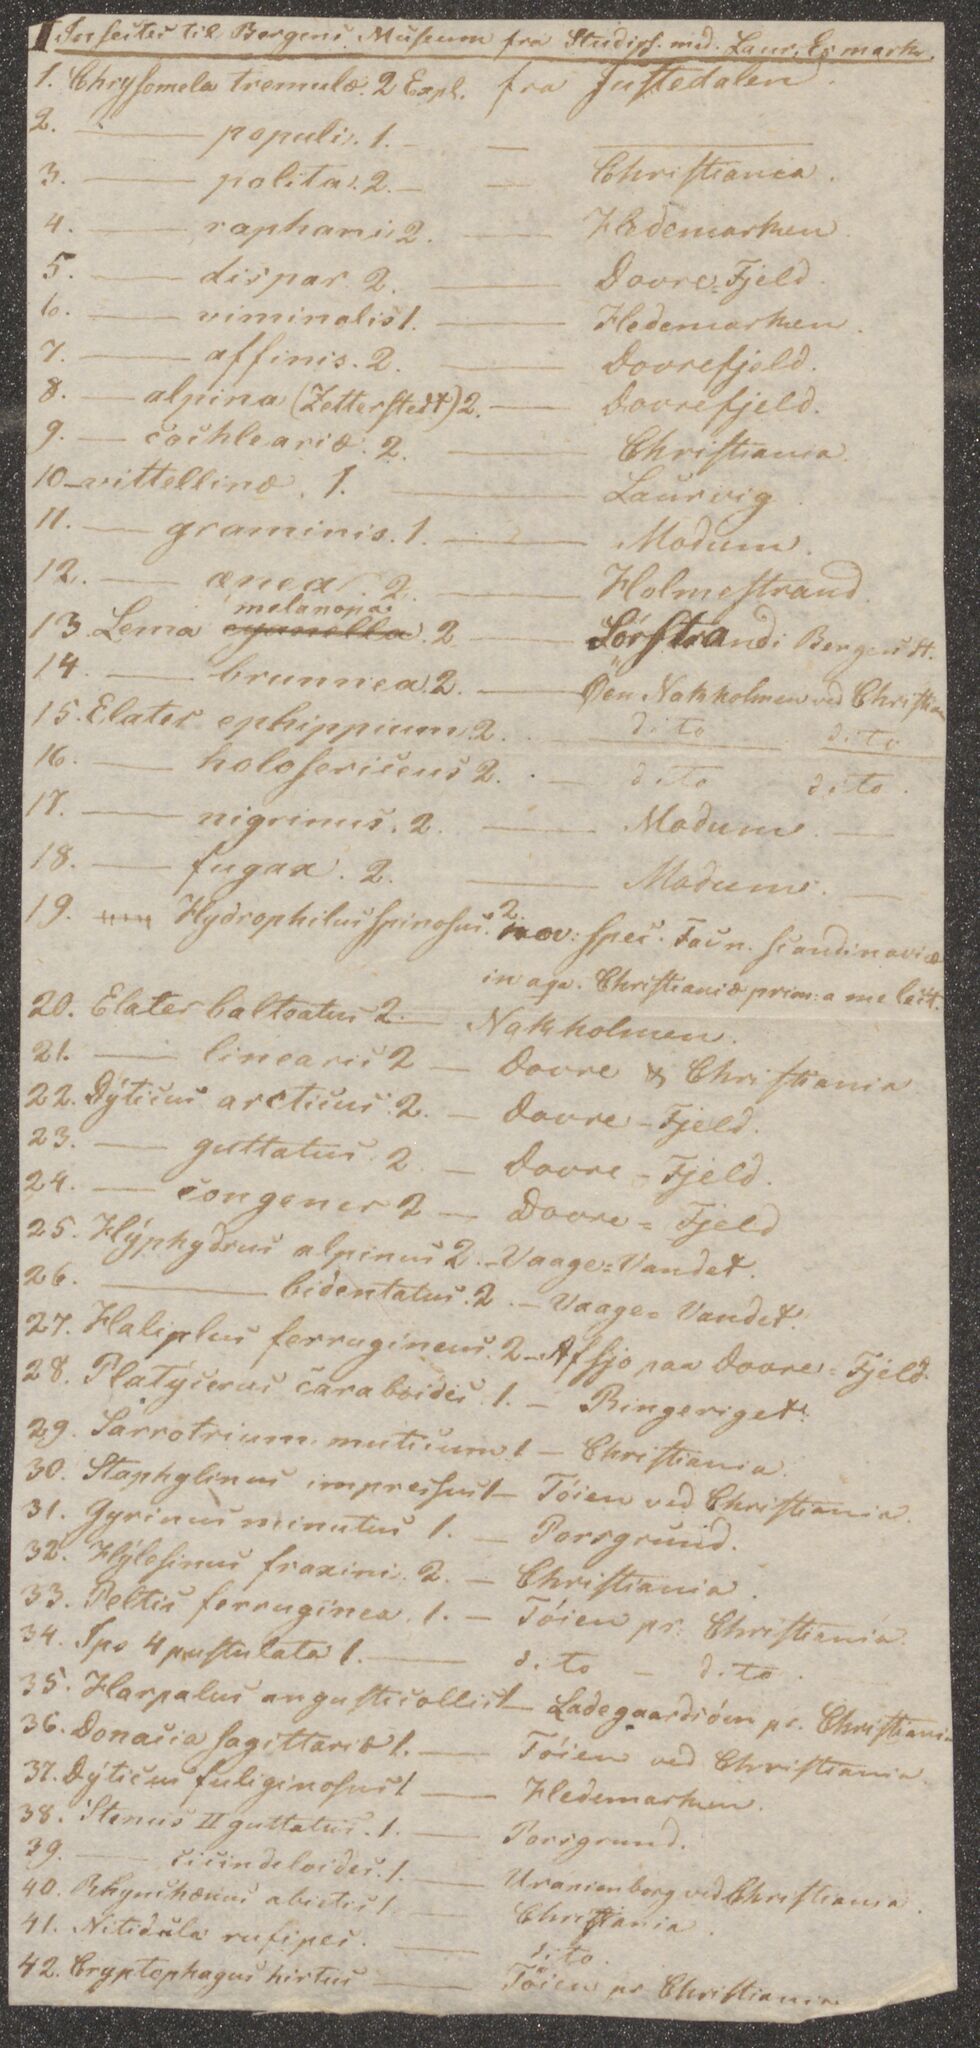 Insecter til Bergens Museum fra Studios. med. Laur. Esmark.
1. Chrysomela tremulæ. 2 Expl. fra Justedalen.
2. —— populi. 1. — — ——
3. —— polita. 2. — — Christiania.
4. —— raphani 2. —— Hedemarken.
5. —— dispar 2. —— Dovre=Fjeld.
6. —— viminalis 1. —— Hedemarken.
7. —— affinis. 2. —— Dovrefjeld.
8. — alpina (Zetterstedt) 2. —— Dovrefjeld.
9. — cochleariæ. 2. —— Christiania.
10 — vittellinæ. 1. —— Laurvig
11. —— graminis. 1. —— Modum.
12. —— ænea. 2. —— Holmestrand
melanopa
13. Lema cyanella. 2 —— Sörstrand i Bergens St.
14. —— brunnea. 2. —— Øen Nakholmen ved Christian
15. Elater ephippium. 2. — dito dito
16. —— holosericeus 2. — dito dito.
17. —— nigrinus. 2. —— Modum. —
18. —— fugax. 2. —— Modum. —
19. Hydrophilus spinosus. 2. nov: spec. Faun. scandinaviæ
in agr. Christianiæ prim: a me lect.
20. Elater balteatus 2. — Nakholmen.
21. —— linearis 2 — Dovre & Christiania
22. Dýticus arcticus. 2. — Dovre-Fjeld.
23. —— guttatus. 2 — Dovre-Fjeld.
24. —— congener 2 — Dovre=Fjeld
25. Hýphydrus alpinus 2. — Vaage=Vandet.
26. —— bidentatus. 2. — Vaage=Vandet.
27. Haliplus ferrugineus. 2 — Afsjø paa Dovre=Fjeld.
28. Platýcerus caraboides. 1. — Ringeriget.
29. Sarrotrium muticum 1 — Christiania.
30. Staphylinus impressus 1 — Tóien ved Christiania.
31. Gyrinus minutus 1. — Porsgrund.
32. Hýlesinus fraxini. 2. — Christiania.
33. Peltis ferruginea. 1. — Tóien pr. Christiania.
34. Ips 4 pustulata 1. —— dito — dito.
35. Harpalus angusticollis 1 — Ladegaardsóen pr. Christiania
36. Donacia sagittariæ 1. — Tóien ved Christiania.
37. Dýticus fuliginosus 1 —— Hedemarken.
38. Stenus II guttatus. 1. —— Porsgrund.
39. —— cicindeloides. 1. —— Uranienborg ved Christiania.
40. Rhynchænus abietis 1. —— Christiania.
41. Nitidula rufipes. —— dito.
42. Cryptophagus hirtus —— Töien pr Christiania